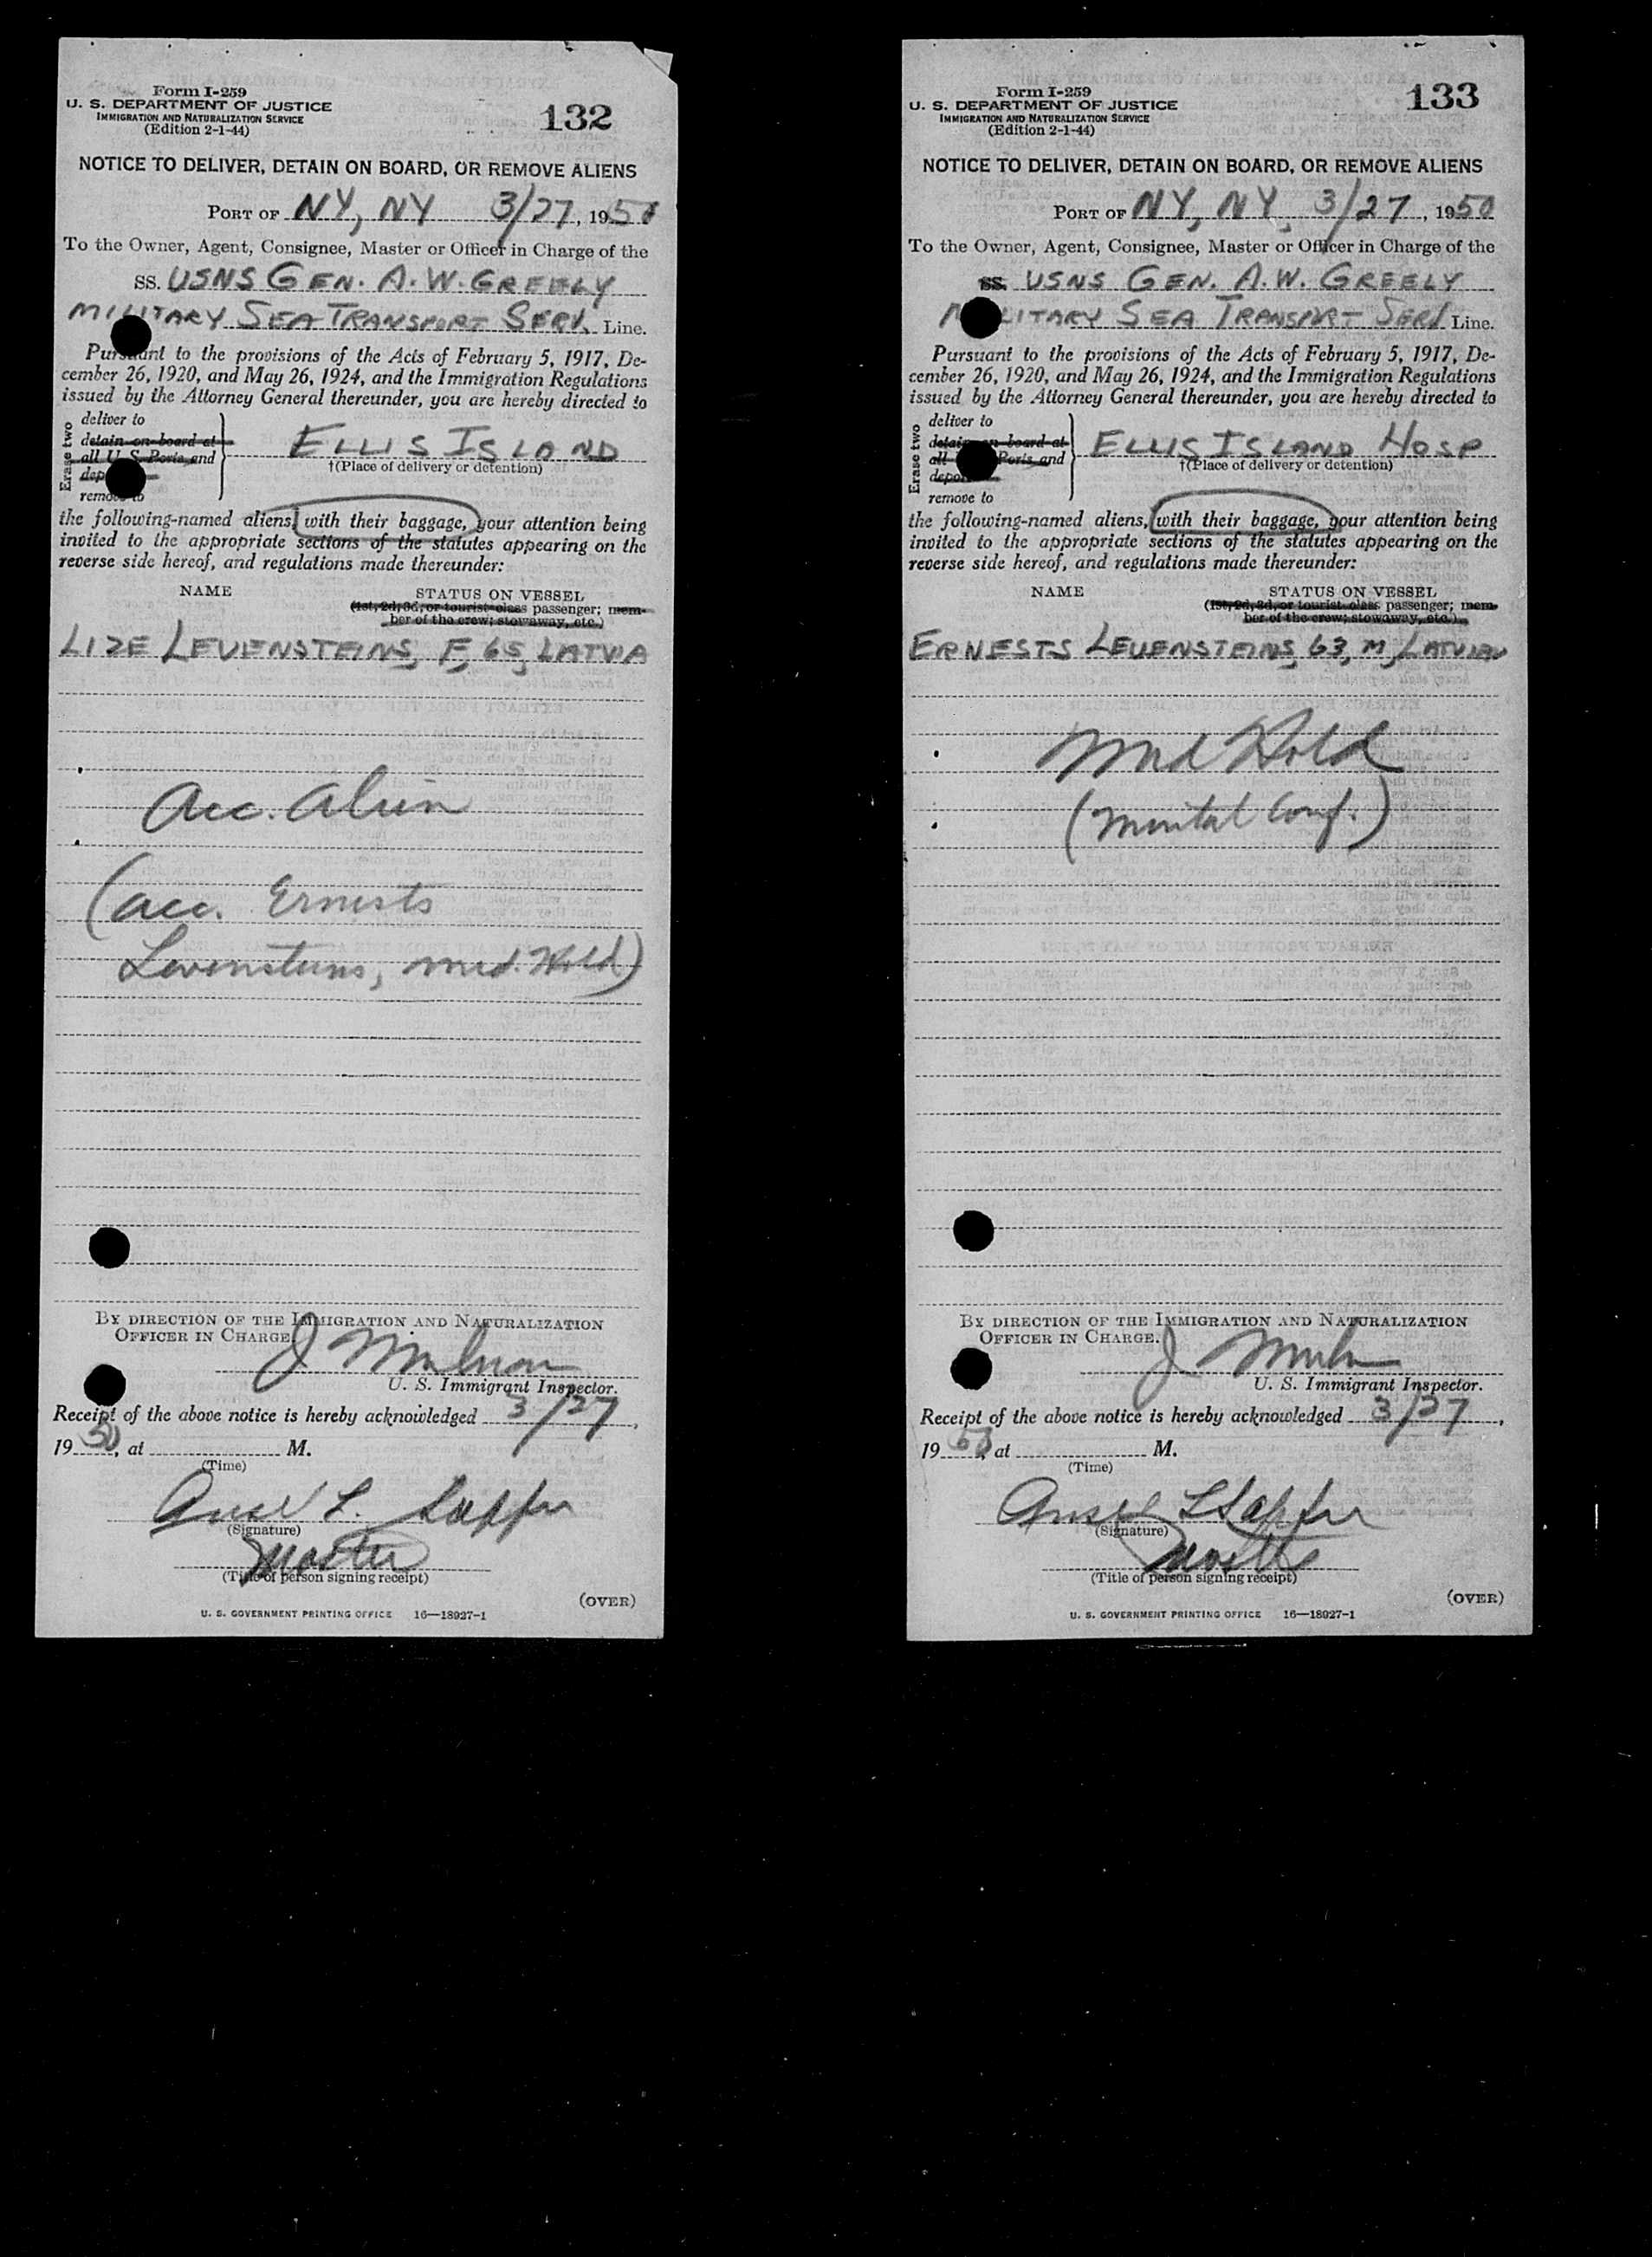 Form I-259
U. S. DEPARTMENT OF JUSTICE
IMMIGRATION AND NATURALIZATION SERVICE
(Edition 2-1-44)
132
NOTICE TO DELIVER, DETAIN ON BOARD, OR REMOVE ALIENS
PORT OF NY, NY 3/27, 1950
To the Owner, Agent, Consignee, Master or Officer in Charge of the
SS. USNS GEN. A. W. GREELY
MILITARY SEA TRANSPORT SERV. Line.
Pursuant to the provisions of the Acts of February 5, 1917, De-
cember 26, 1920, and May 26, 1924, and the Immigration Regulations
issued by the Attorney General thereunder, you are hereby directed to
Erase two
deliver to
detain on board at
all U. S. Ports and
remove to
ELLIS ISLAND
†(Place of delivery or detention)
the following-named aliens, with their baggage, your attention being
invited to the appropriate sections of the statutes appearing on the
reverse side hereof, and regulations made thereunder:
NAME
STATUS ON VESSEL
(1st, 2d, 3d, or tourist class passenger; mem-
ber of the crew; stowaway, etc.)
LIZE LEVENSTEINS, F, 65, LATVIA
Acc. Alien
(acc. Ernests
Levensteins, med. Hold)
BY DIRECTION OF THE IMMIGRATION AND NATURALIZATION
OFFICER IN CHARGE.
J
U. S. Immigrant Inspector.
Receipt of the above notice is hereby acknowledged 3/27,
1950, at M.
(Time)
(Signature)
Master
(Title of person signing receipt)
(OVER)
U. S. GOVERNMENT PRINTING OFFICE 16—18927-1
Form I-259
U. S. DEPARTMENT OF JUSTICE
IMMIGRATION AND NATURALIZATION SERVICE
(Edition 2-1-44)
133
NOTICE TO DELIVER, DETAIN ON BOARD, OR REMOVE ALIENS
PORT OF NY, NY, 3/27, 1950
To the Owner, Agent, Consignee, Master or Officer in Charge of the
SS. USNS GEN. A. W. GREELY
MILITARY SEA TRANSPORT SERV. Line.
Pursuant to the provisions of the Acts of February 5, 1917, De-
cember 26, 1920, and May 26, 1924, and the Immigration Regulations
issued by the Attorney General thereunder, you are hereby directed to
Erase two
deliver to
detain on board at
all Ports and
remove to
ELLIS ISLAND HOSP
†(Place of delivery or detention)
the following-named aliens, with their baggage, your attention being
invited to the appropriate sections of the statutes appearing on the
reverse side hereof, and regulations made thereunder:
NAME
STATUS ON VESSEL
(1st, 2d, 3d, or tourist class passenger; mem-
ber of the crew; stowaway, etc.)
ERNESTS LEVENSTEINS, 63, M, LATVIAN
Med Hold
(Mental Conf.)
BY DIRECTION OF THE IMMIGRATION AND NATURALIZATION
OFFICER IN CHARGE.
J
U. S. Immigrant Inspector.
Receipt of the above notice is hereby acknowledged 3/27,
1950, at M.
(Time)
(Signature)
Master
(Title of person signing receipt)
(OVER)
U. S. GOVERNMENT PRINTING OFFICE 16—18927-1